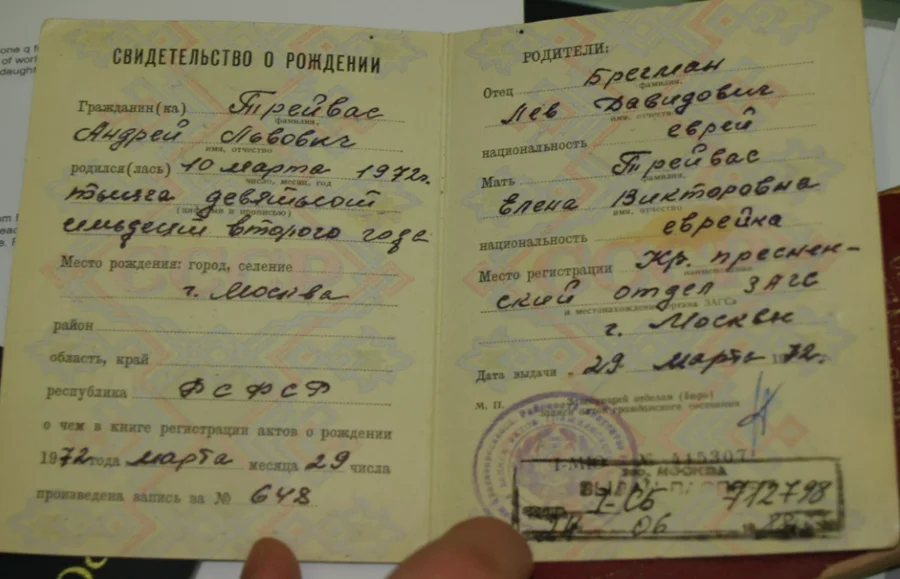 one q f
of worl
daughs
СВИДЕТЕЛЬСТВО О РОЖДЕНИИ
Гражданин(ка) Трейвас
фамилия,
Андрей Львович
имя, отчество
родился(лась) 10 марта 1972г.
число, месяц, год
тысяча девятьсот
(цифрами и прописью)
семьдесят второго года
Место рождения: город, селение
г. Москва
район
область, край
республика РСФСР
о чем в книге регистрации актов о рождении
1972 года марта месяца 29 числа
произведена запись за № 648
РОДИТЕЛИ:
Отец Брегман
фамилия,
Лев Давидович
имя, отчество
национальность еврей
Мать Трейвас
фамилия,
Елена Викторовна
имя, отчество
национальность еврейка
Место регистрации Кр. преснен-
наименование
ский отдел ЗАГС
и местонахождение органа ЗАГСа
г. Москвы
Дата выдачи „ 29 марта 1972г.
М. П. Заведующий отделом (бюро)
записи актов гражданского состояния
I-МЮ № 445307
гор. МОСКВА
ВЫДАН ПАСПОРТ
I-СБ 712798
06